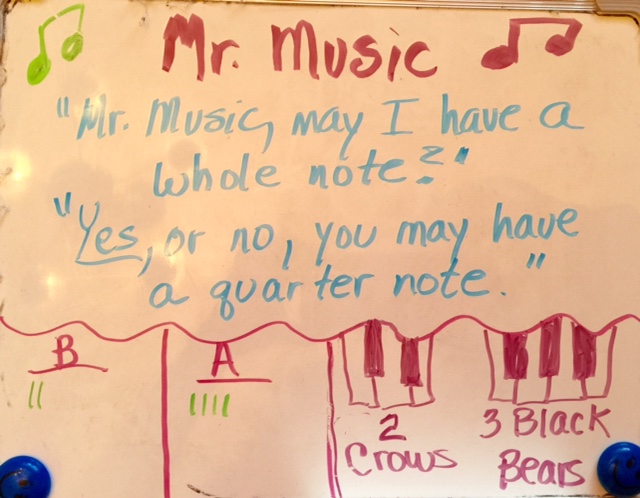 Mr. Music
"Mr. Music, may I have a
whole note?"
"Yes, or no, you may have
a quarter note."
B
A
2
Crows
3 Black
Bears